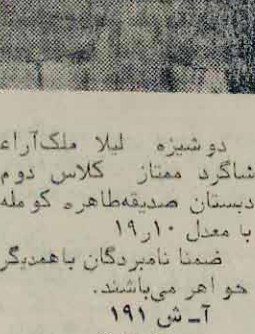 دوشیزه لیلا ملک‌آراء
شاگرد ممتاز کلاس دوم
دبستان صدیقه‌طاهره کومله
با معدل ۱۹٫۱۰
ضمنا نامبردگان باهمدیگر
خواهر می‌باشند.
آ‌ـ ش ۱۹۱